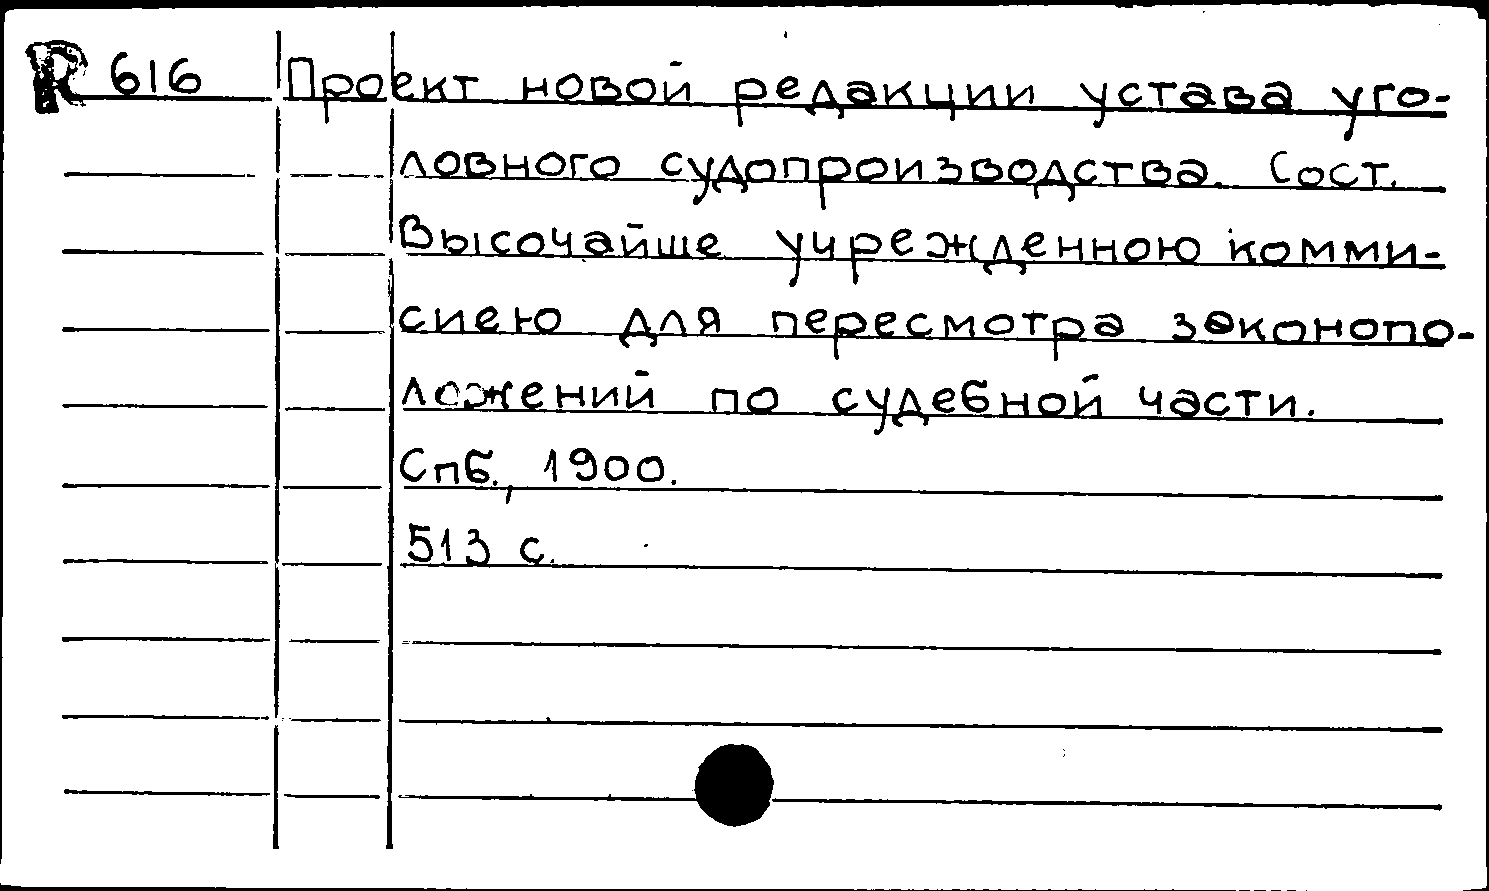 R 616 Проект новой редакции устава уго-
ловного судопроизводства. Сост.
Высочайше учрежденною комми-
сиею для пересмотра законопо-
ложений по судебной части.
Спб., 1900.
513 с.